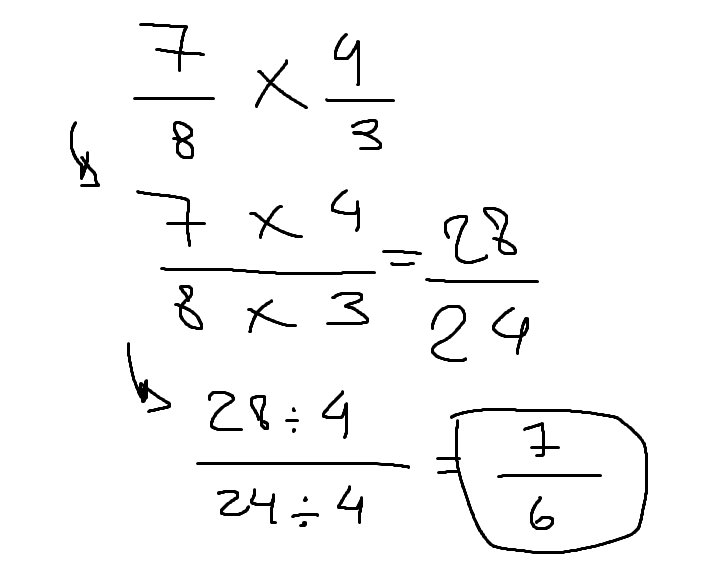 7/8 × 4/3
(7 × 4)/(8 × 3) = 28/24
(28 ÷ 4)/(24 ÷ 4) = 7/6